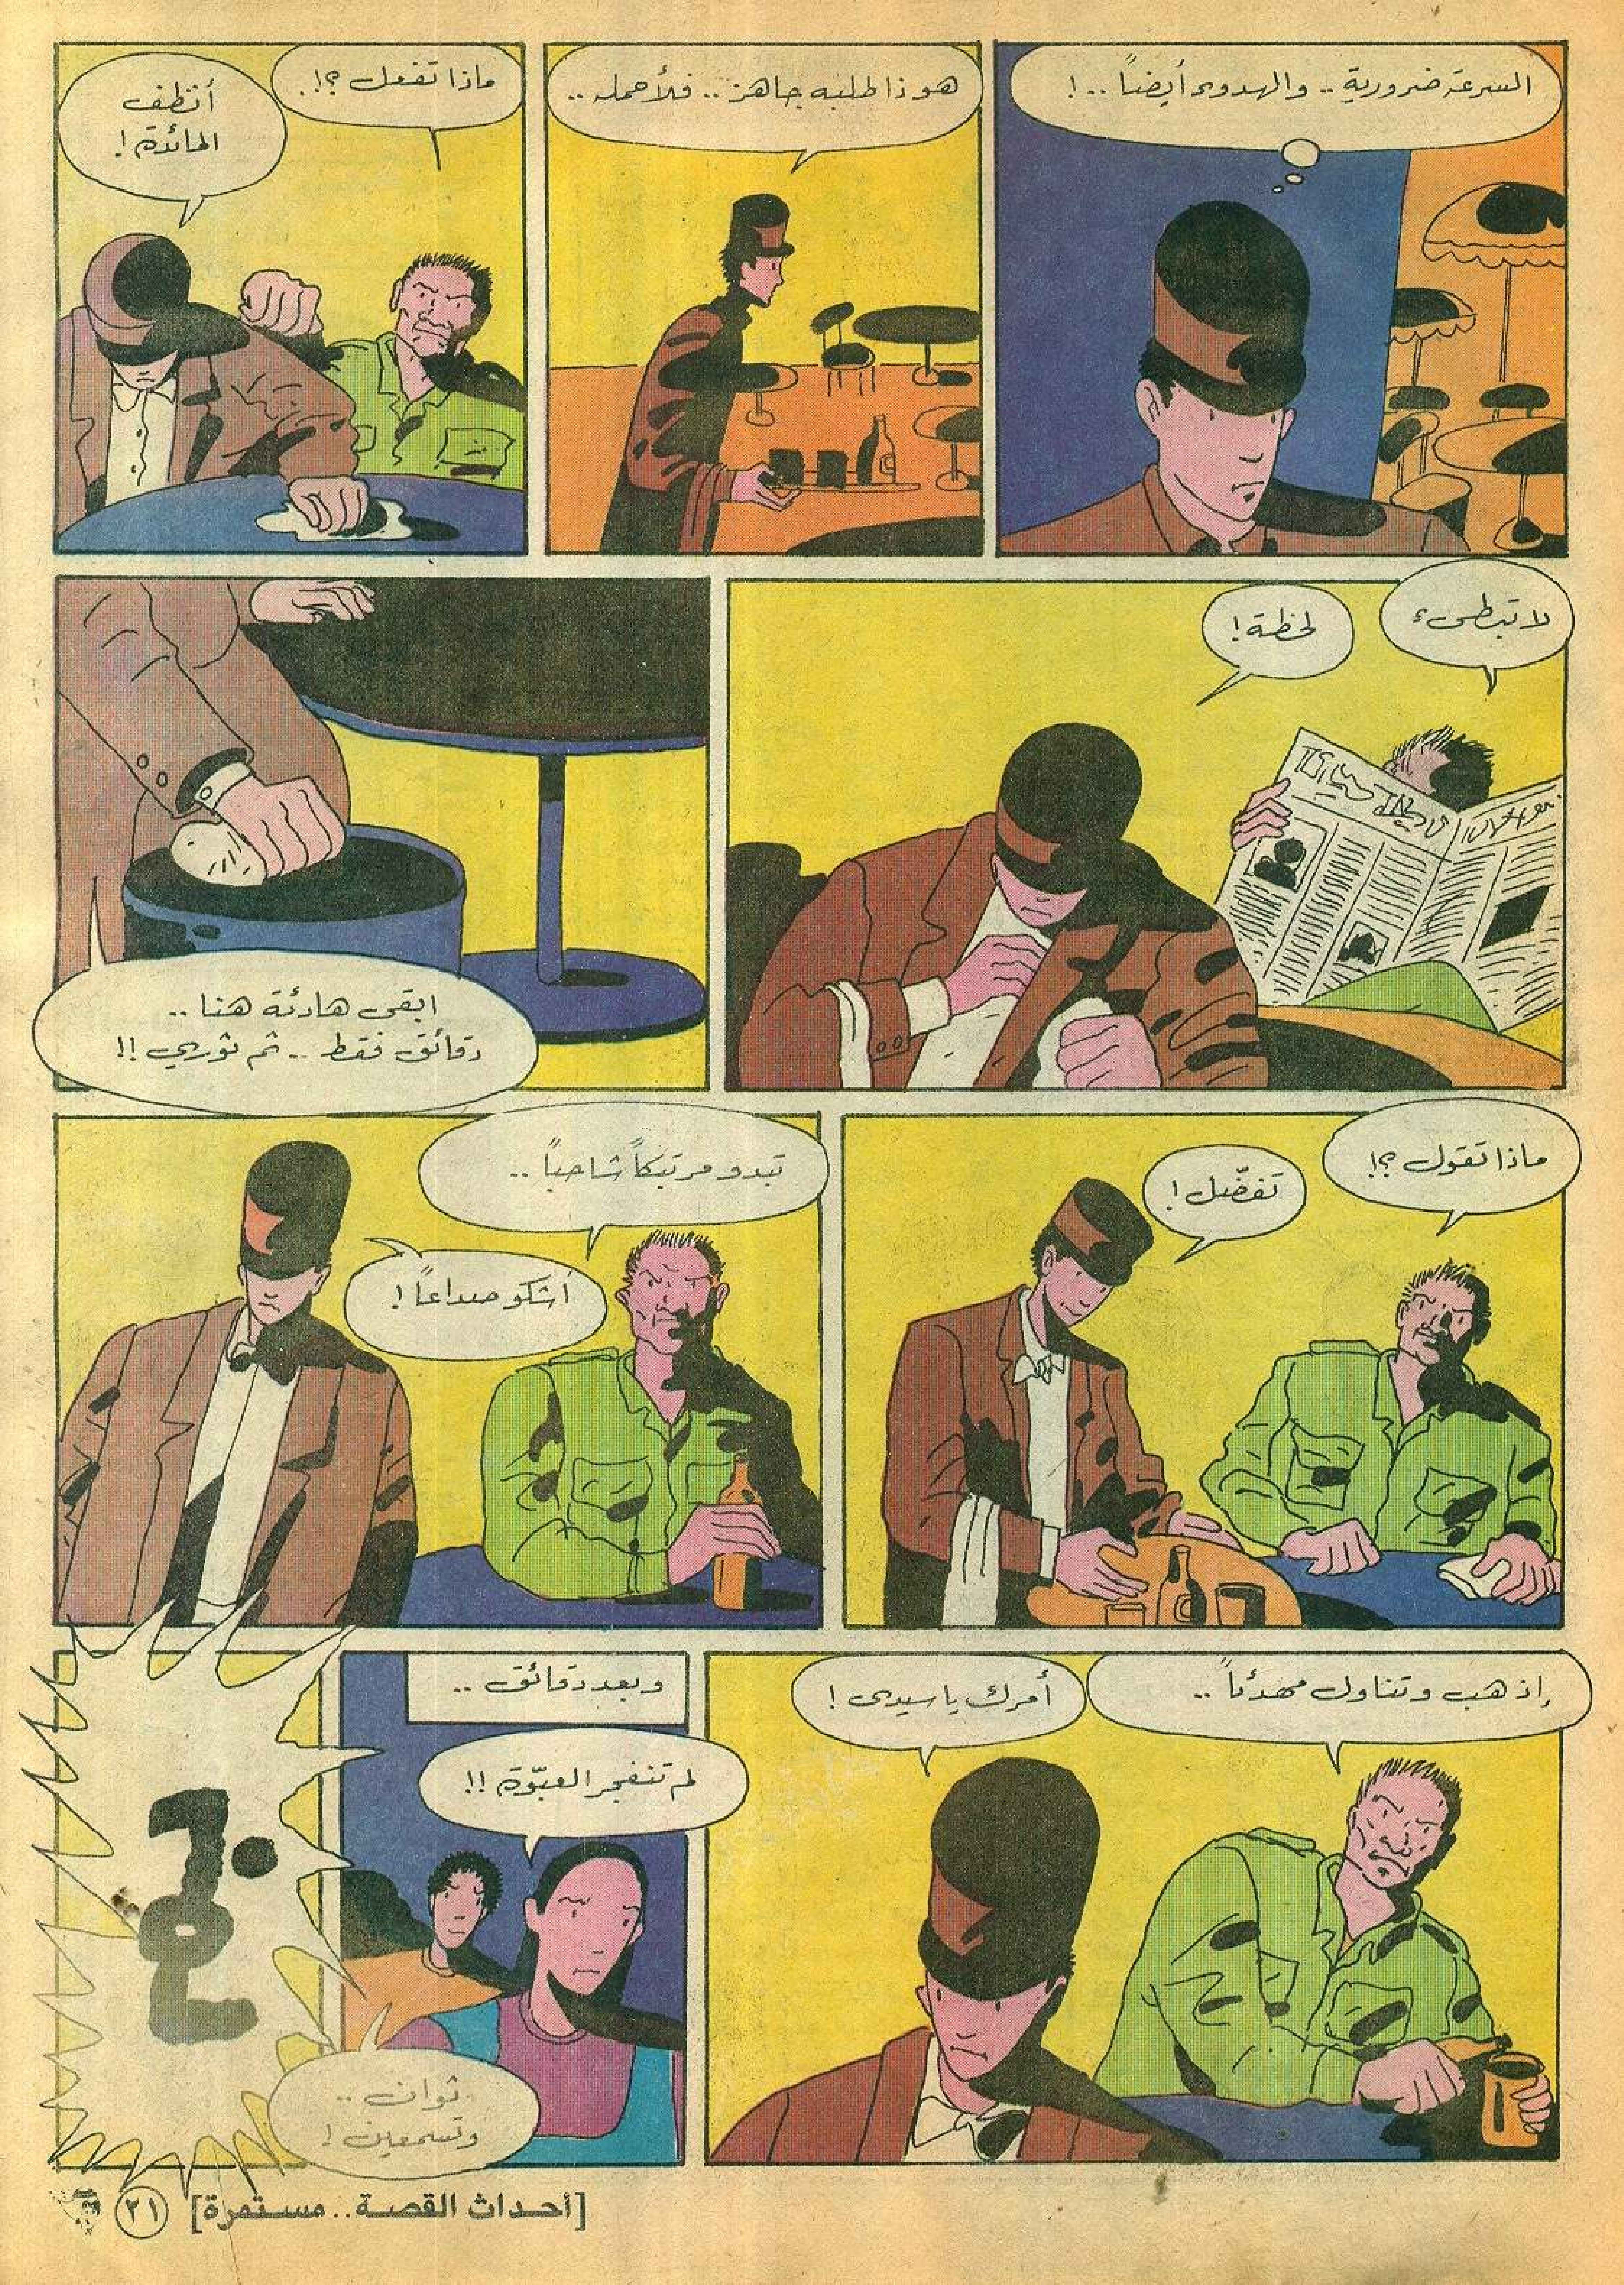 السرعة ضرورية.. والهدوء أيضاً..!
هوذا طلبه جاهز.. فلأحمله..
ماذا تفعل؟!.
أنظف
المائدة!
لا تبطىء
لحظة!
ابقي هادئة هنا..
دقائق فقط.. ثم ثوري!!
ماذا تقول؟!
تفضّل!
تبدو مرتبكاً شاحباً..
أشكو صداعاً!
إذهب وتناول مهدئاً..
أمرك يا سيدي!
وبعد دقائق..
لم تنفجر العبّوة!!
ثوان..
وتسمعين!
[أحداث القصة.. مستمرة]
٢١